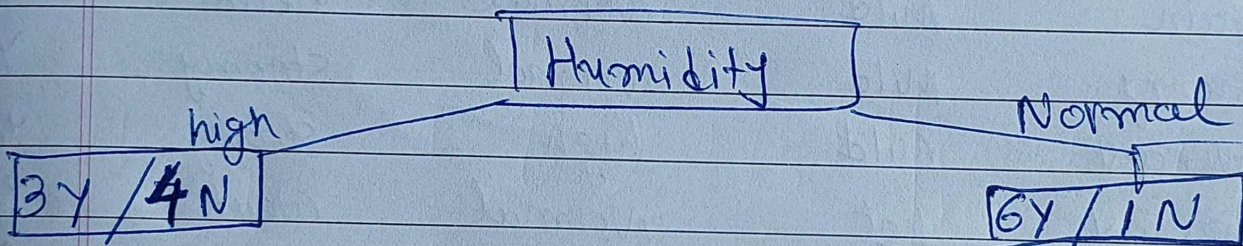 Humidity
high
Normal
3Y / 4N
6Y / 1N